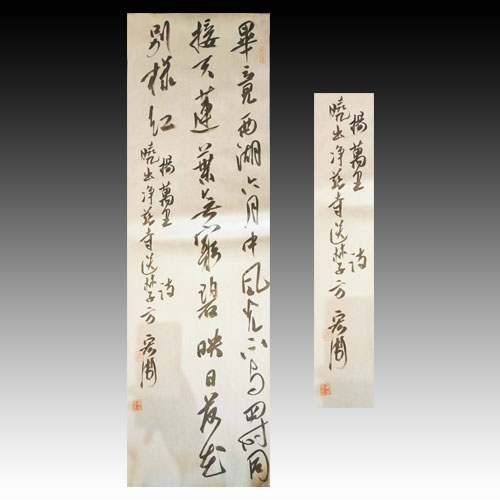 畢竟西湖六月中風光不与四時同
接天蓮葉無窮碧映日荷花
別様紅
楊萬里 詩
曉出净慈寺送林子方
楊萬里 詩
曉出净慈寺送林子方